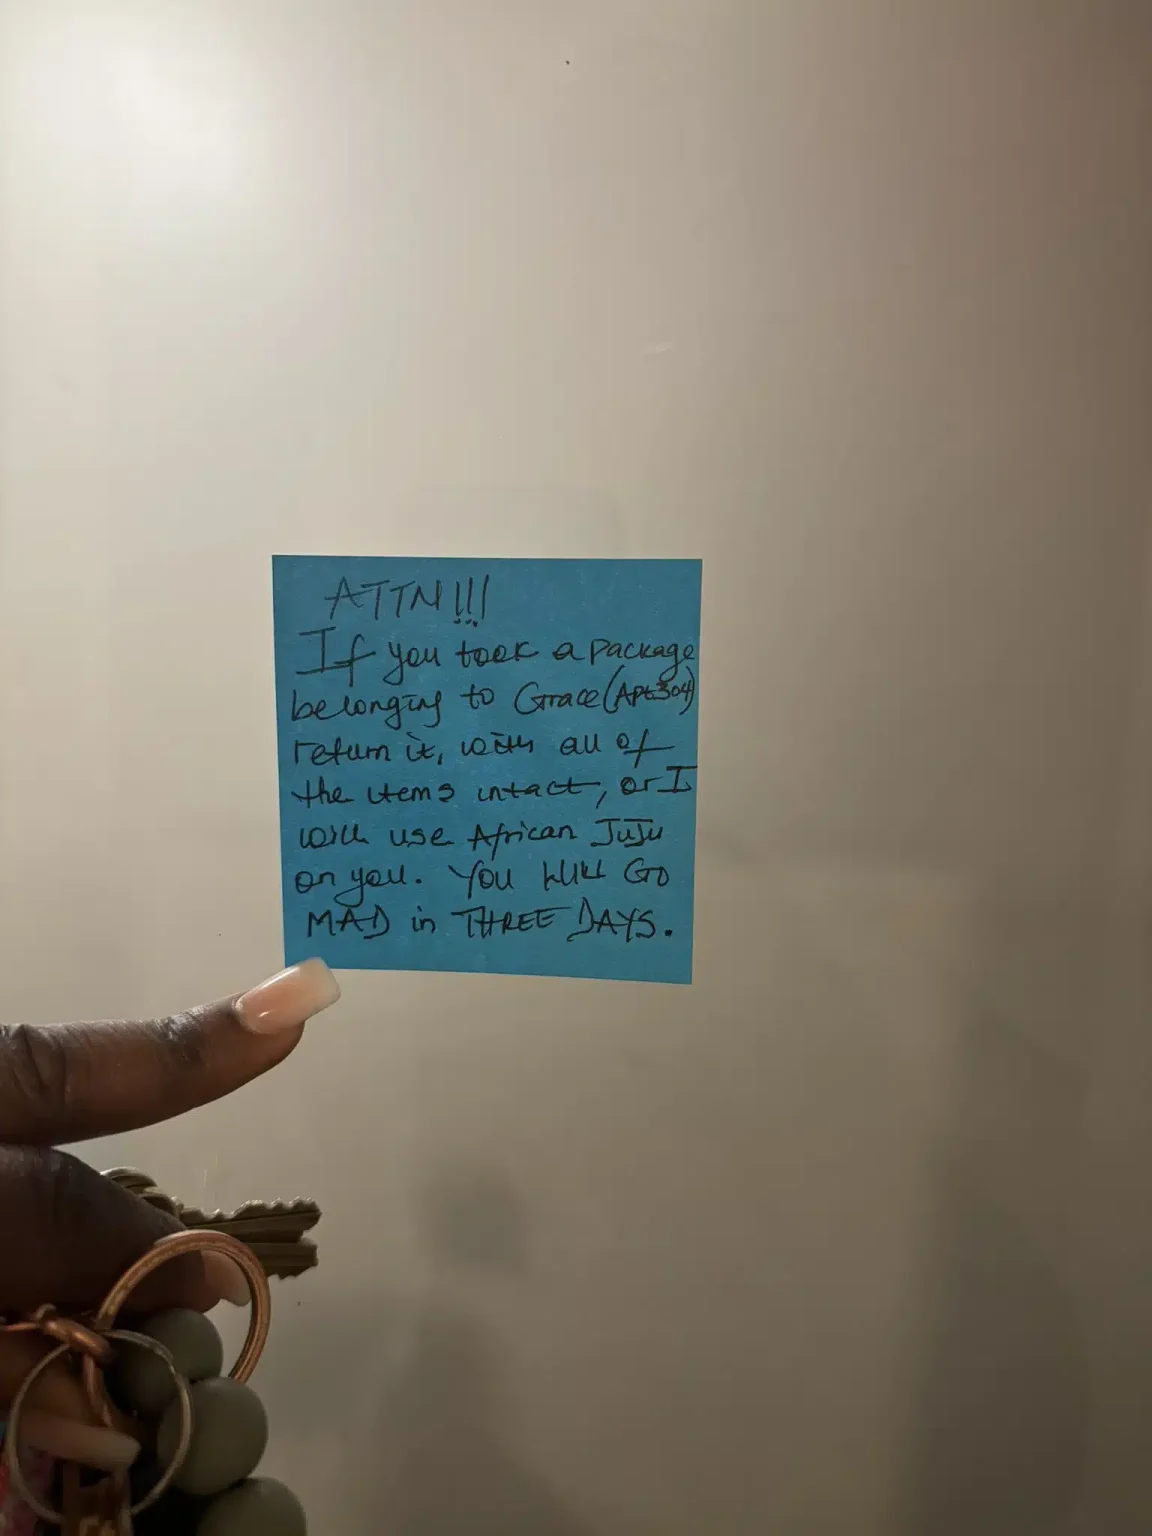 ATTN!!!
If you took a package
belonging to Grace (Apt 304)
return it, with all of
the items intact, or I
will use African JuJu
on you. You WILL GO
MAD in THREE DAYS.